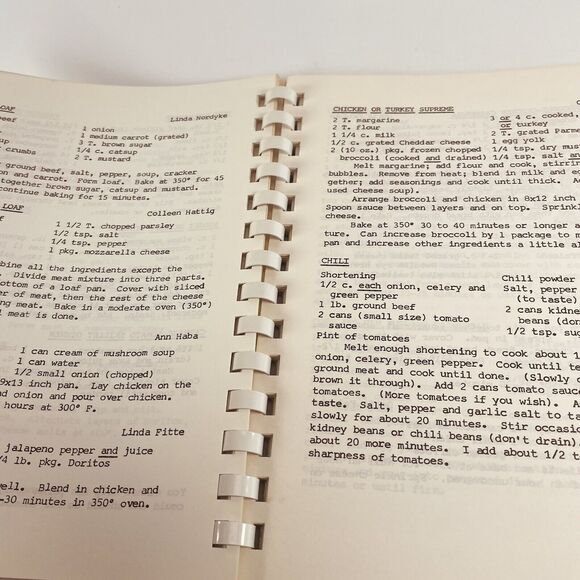 LOAF
eef
Linda Nordyke
1 onion
1 medium carrot (grated)
3 T. brown sugar
up 1/4 c. catsup
crumbs 2 T. mustard
ground beef, salt, pepper, soup, cracker
on and carrot. Form loaf. Bake at 350° for 45
together brown sugar, catsup and mustard.
continue baking for 15 minutes.
LOAF Colleen Hattig
f 1 1/2 T. chopped parsley
1/2 tsp. salt
1/4 tsp. pepper
1 pkg. mozzarella cheese
bine all the ingredients except the
Divide meat mixture into three parts.
ottom of a loaf pan. Cover with sliced
er of meat, then the rest of the cheese
ng meat. Bake in a moderate oven (350°)
l meat is done.
Ann Haba
1 can cream of mushroom soup
1 can water
1/2 small onion (chopped)
9x13 inch pan. Lay chicken on the
nd onion and pour over chicken.
hours at 300° F.
Linda Fitte
jalapeno pepper and juice
/4 lb. pkg. Doritos
well. Blend in chicken and
-30 minutes in 350° oven.
CHICKEN OR TURKEY SUPREME
2 T. margarine 3 or 4 c. cooked,
2 T. flour or turkey
1 1/4 c. milk 2 T. grated Parme
1/2 c. grated Cheddar cheese 1 egg yolk
2 (10 oz.) pkg. frozen chopped 1/4 tsp. dry must
broccoli (cooked and drained) 1/4 tsp. salt and
Melt margarine; add flour and cook, stirrin
bubbles. Remove from heat; blend in milk and eg
gether; add seasonings and cook until thick. A
used cheese soup).
Arrange broccoli and chicken in 8x12 inch
Spoon sauce between layers and on top. Sprinkl
cheese.
Bake at 350° 30 to 40 minutes or longer a
ture. Can increase broccoli by 1 package to m
pan and increase other ingredients a little al
CHILI
Shortening Chili powder
1/2 c. each onion, celery and Salt, pepper,
green pepper (to taste)
1 lb. ground beef 2 cans kidney
2 cans (small size) tomato beans (don'
sauce 1/2 tsp. suga
Pint of tomatoes
Melt enough shortening to cook about 1
onion, celery, green pepper. Cook until te
ground meat and cook until done. (Slowly c
brown it through). Add 2 cans tomato sauc
tomatoes. (More tomatoes if you wish). A
taste. Salt, pepper and garlic salt to ta
slowly for about 20 minutes. Stir occasio
kidney beans or chili beans (don't drain)
about 20 more minutes. I add about 1/2 t
sharpness of tomatoes.